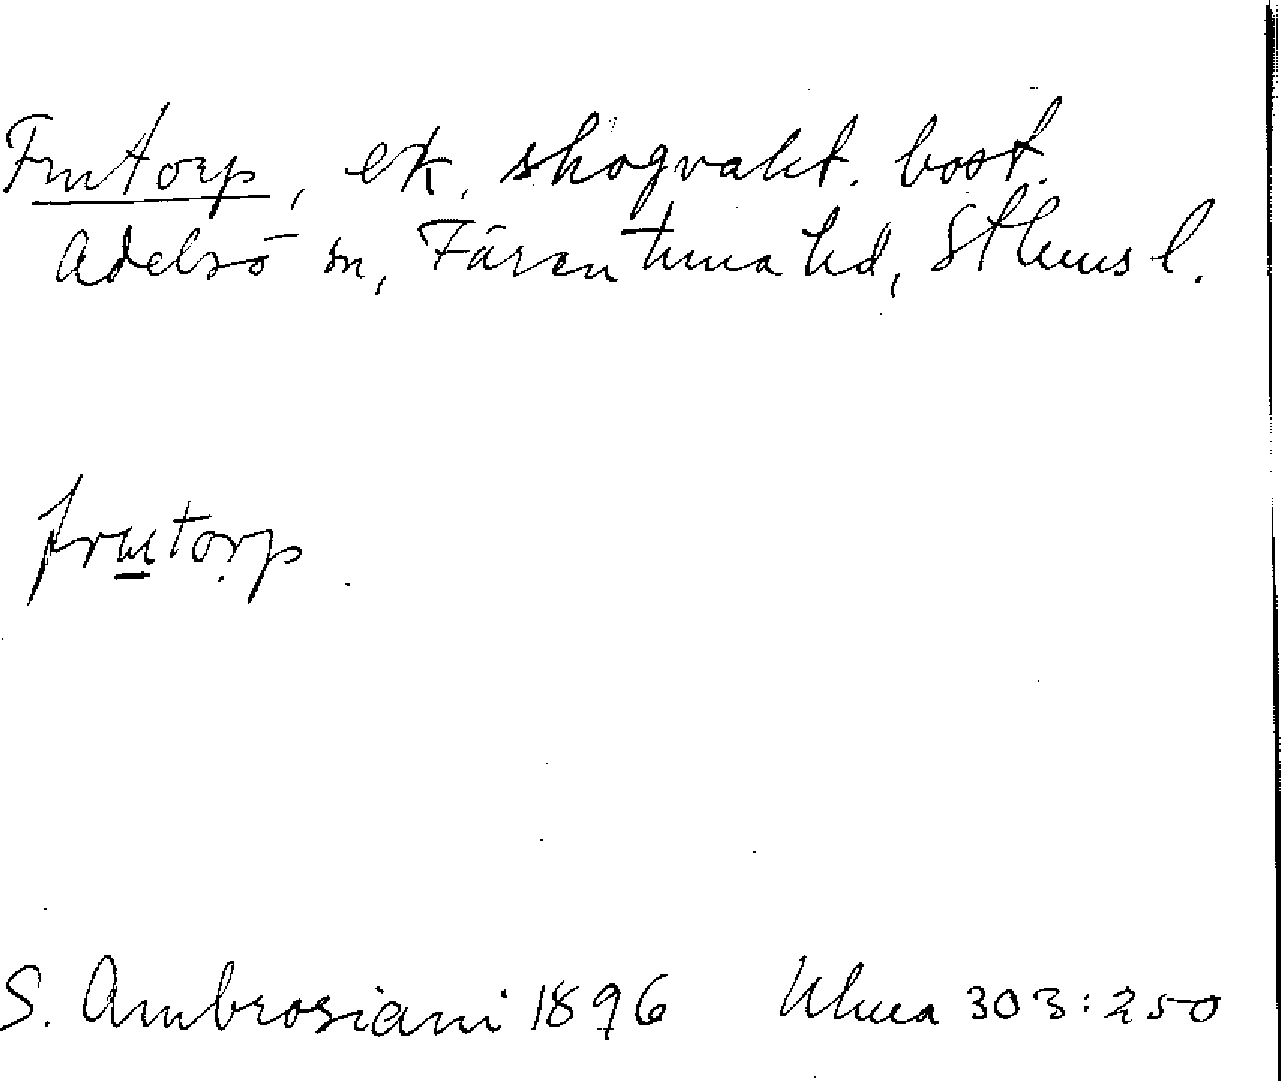 Frutorp, ek. skogvakt. bost.
Adelsö sn, Färentuna hd, Sthms l.
frutorp.
S. Ambrosiani 1896 Ulma 303:250